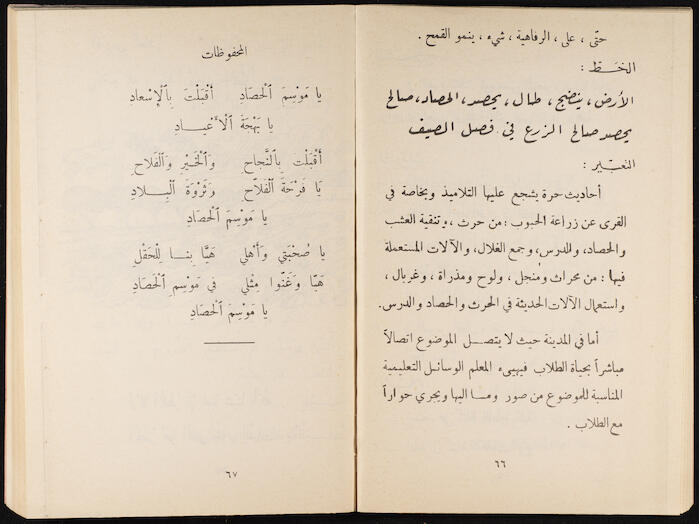 حتّى ، على ، الرفاهية ، شيء ، ينمو القمح .
الخـط :
الأرض ، ينضج ، طال ، يحصد ، الحصاد ، صالح
يحصد صالح الزرع في فصل الصيف
التعبير :
أحاديث حرة يشجع عليها التلاميذ وبخاصة في
القرى عن زراعة الحبوب : من حرث ، وتنقية العشب
والحصاد ، والدرس ، وجمع الغلال ، والآلات المستعملة
فيها : من محراث ومنجل ، ولوح ومذراة ، وغربال ،
واستعمال الآلات الحديثة في الحرث والحصاد والدرس .
أما في المدينة حيث لا يتصـل الموضوع اتصالاً
مباشراً بحياة الطلاب فيهيىء المعلم الوسائل التعليمية
المناسبة للموضوع من صور ومـا اليها ويجري حواراً
مع الطلاب .
٦٦
المحفوظات
يا مَوْسِمَ اَلْحصَادِ أَقْبَلْتَ بِاَلْإِسْعادِ
يا بَهْجَةَ اَلْأَعْيـادِ
أَقْبَلْتَ بِالنَّجاحِ وَاَلْخَيْرِ وَاَلْفَلاحِ
يَا فَرْحَةَ اَلْفَلّاحِ وَثَرْوَةَ اَلْبِـلادِ
يا مَوْسِمَ اَلْحَصَادِ
يا صُحْبَتي وَأَهْلي هَيَّا بِنـا لِلْحَقْلِ
هَيّا وَغَنّوا مِثْلي في مَوْسِمِ اَلْحَصَادِ
يا مَوْسِمَ اَلْحَصَادِ
٦٧